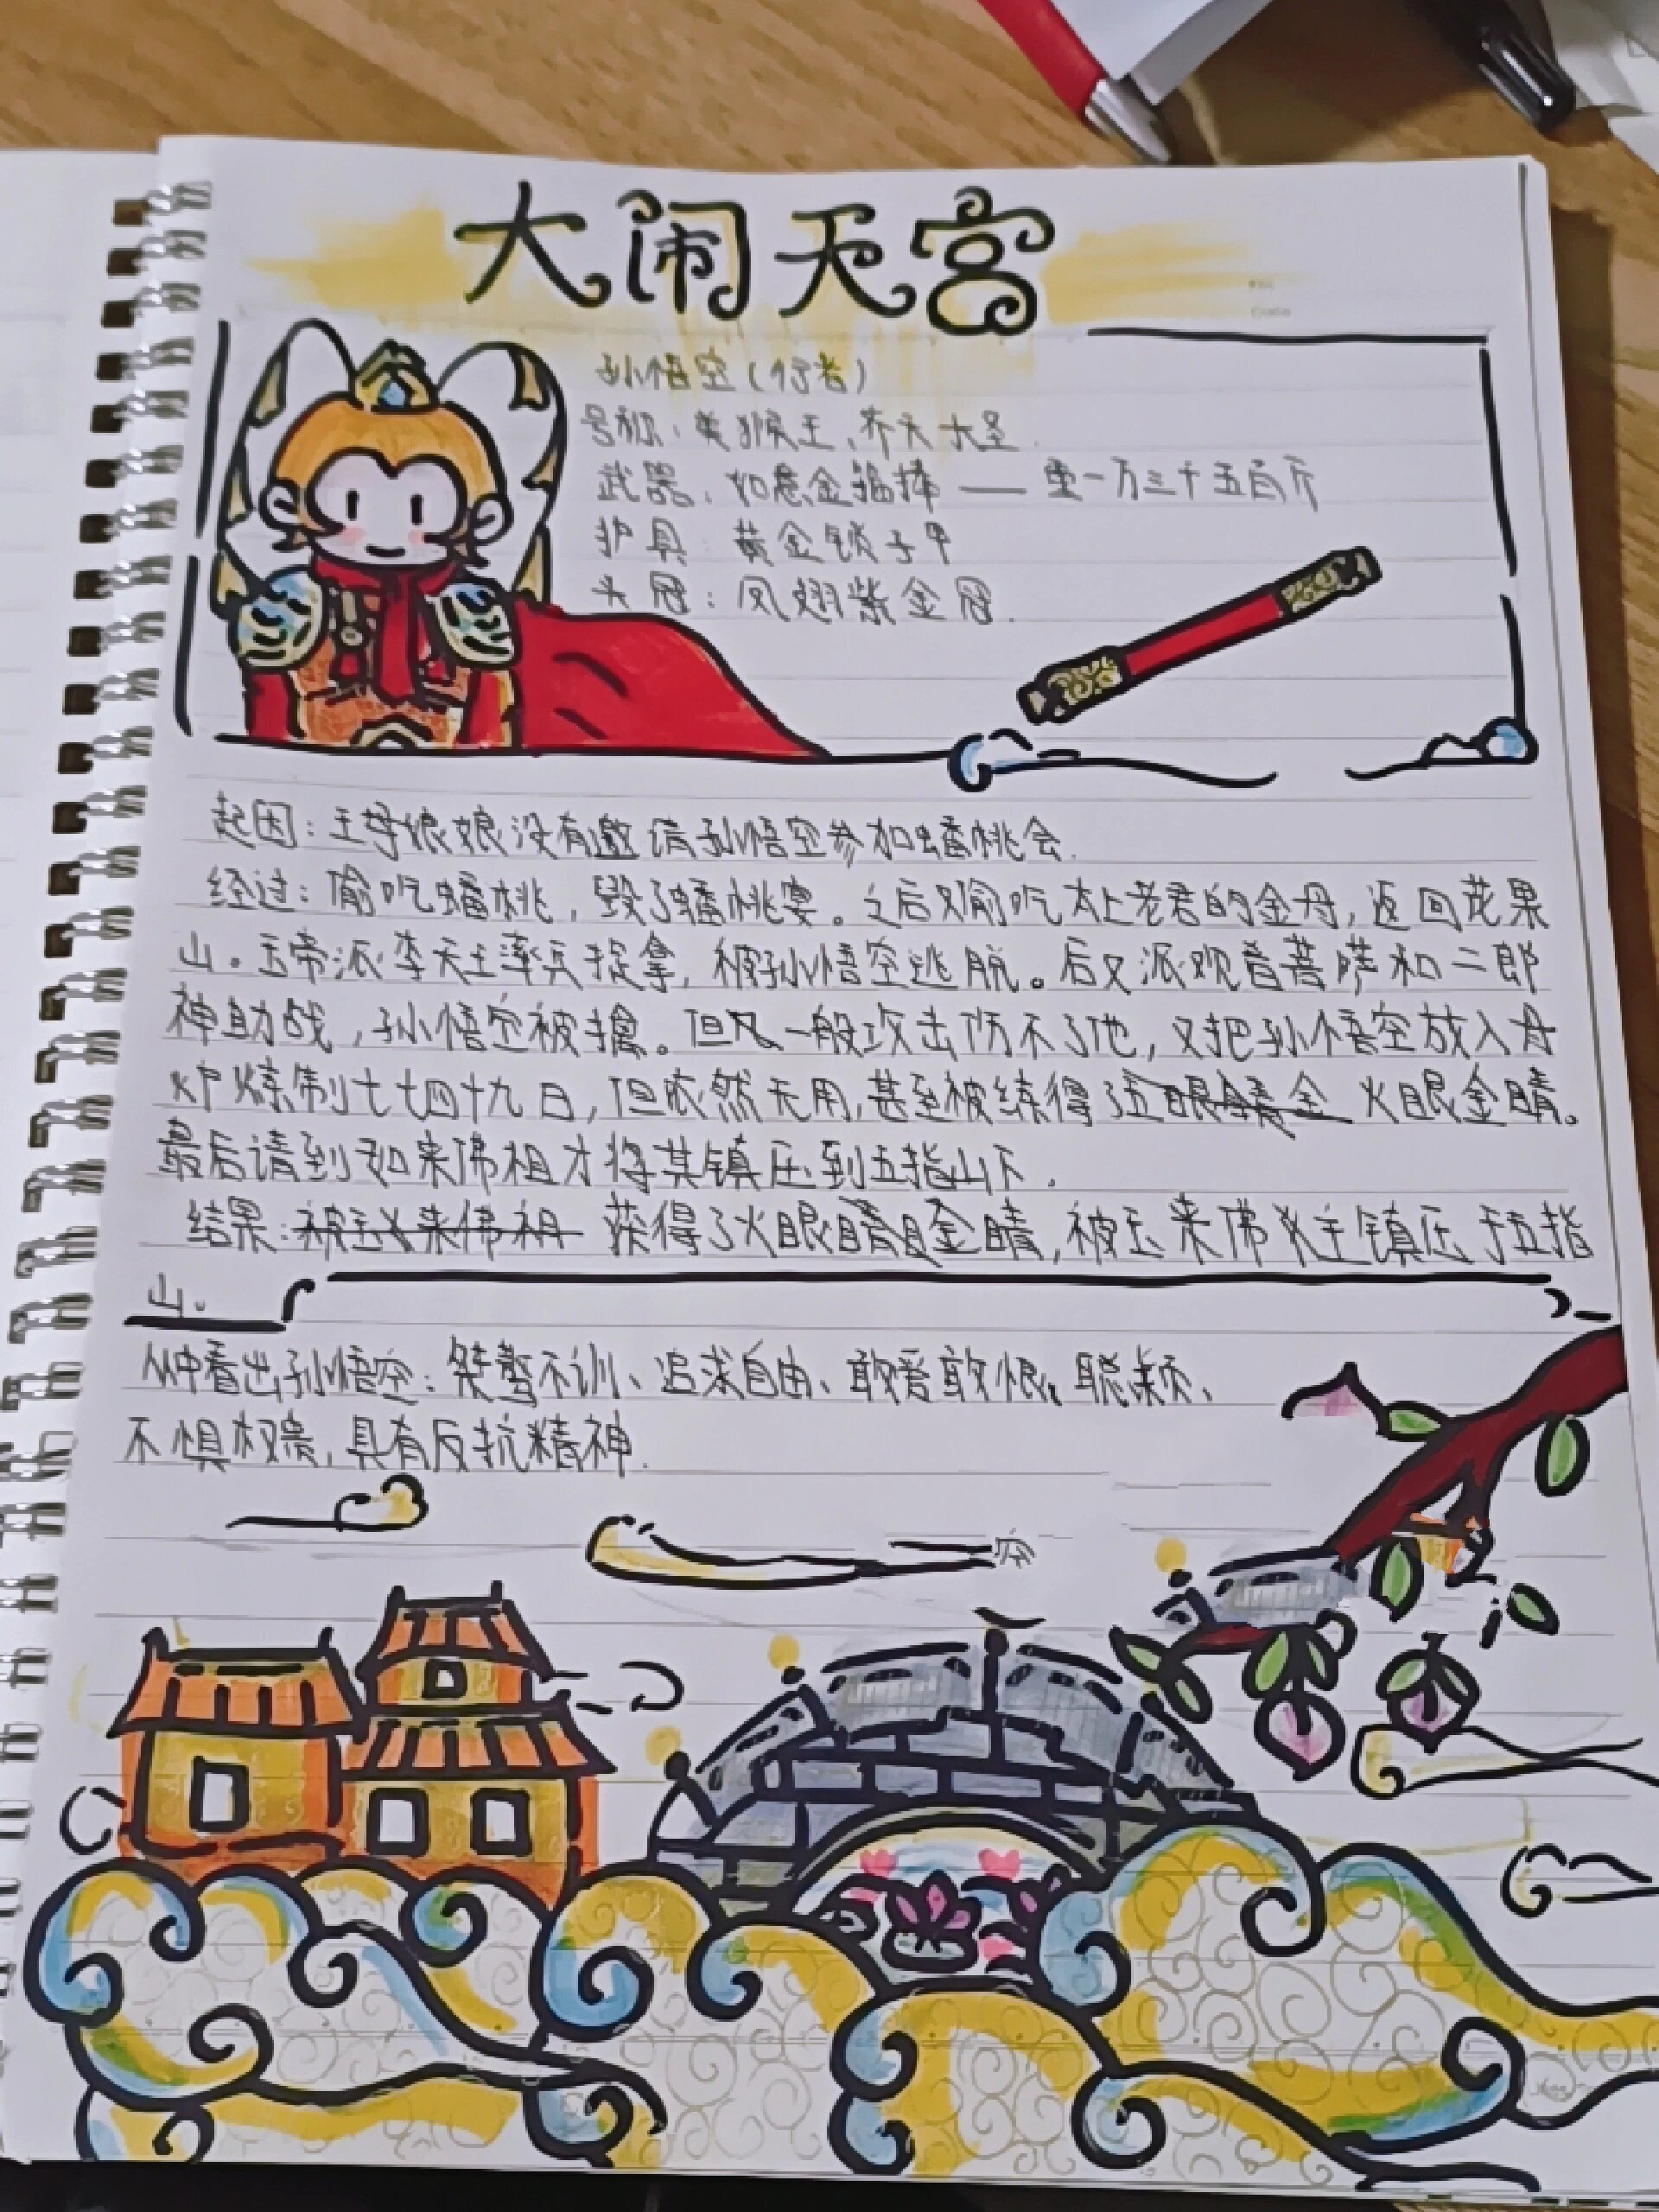 大闹天宫
孙悟空(行者)
号称：美猴王、齐天大圣.
武器：如意金箍棒 —— 重一万三千五百斤
护具：黄金锁子甲
头冠：凤翅紫金冠.
起因：王母娘娘没有邀请孙悟空参加蟠桃会.
经过：偷吃蟠桃，毁了蟠桃宴。之后又偷吃太上老君的金丹，返回花果
山。玉帝派李天王率兵捉拿，被孙悟空逃脱。后又派观音菩萨和二郎
神助战，孙悟空被擒。但一般攻击伤不了他，又把孙悟空放入丹
炉炼制七七四十九日，但依然无用，甚至被练得了 火眼金睛。
最后请到如来佛祖才将其镇压到五指山下.
结果：被 来佛祖 获得了火眼 金睛，被 来佛 镇压于五指
山。
从中看出孙悟空：桀骜不训、追求自由、敢爱敢恨、聪颖、
不惧权贵，具有反抗精神.